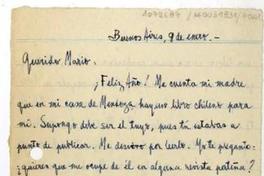 Buenos Aires, 9 de enero.-
Querido Mario:
¡Feliz Año! Me cuenta mi madre
que en mi casa de Mendoza hay un libro chileno para
mí. Supongo debe ser el tuyo, pues tú estabas a
punto de publicar. Me desvivo por leerlo. Yo te pregunto:
¿quieres que me ocupe de él en alguna revista